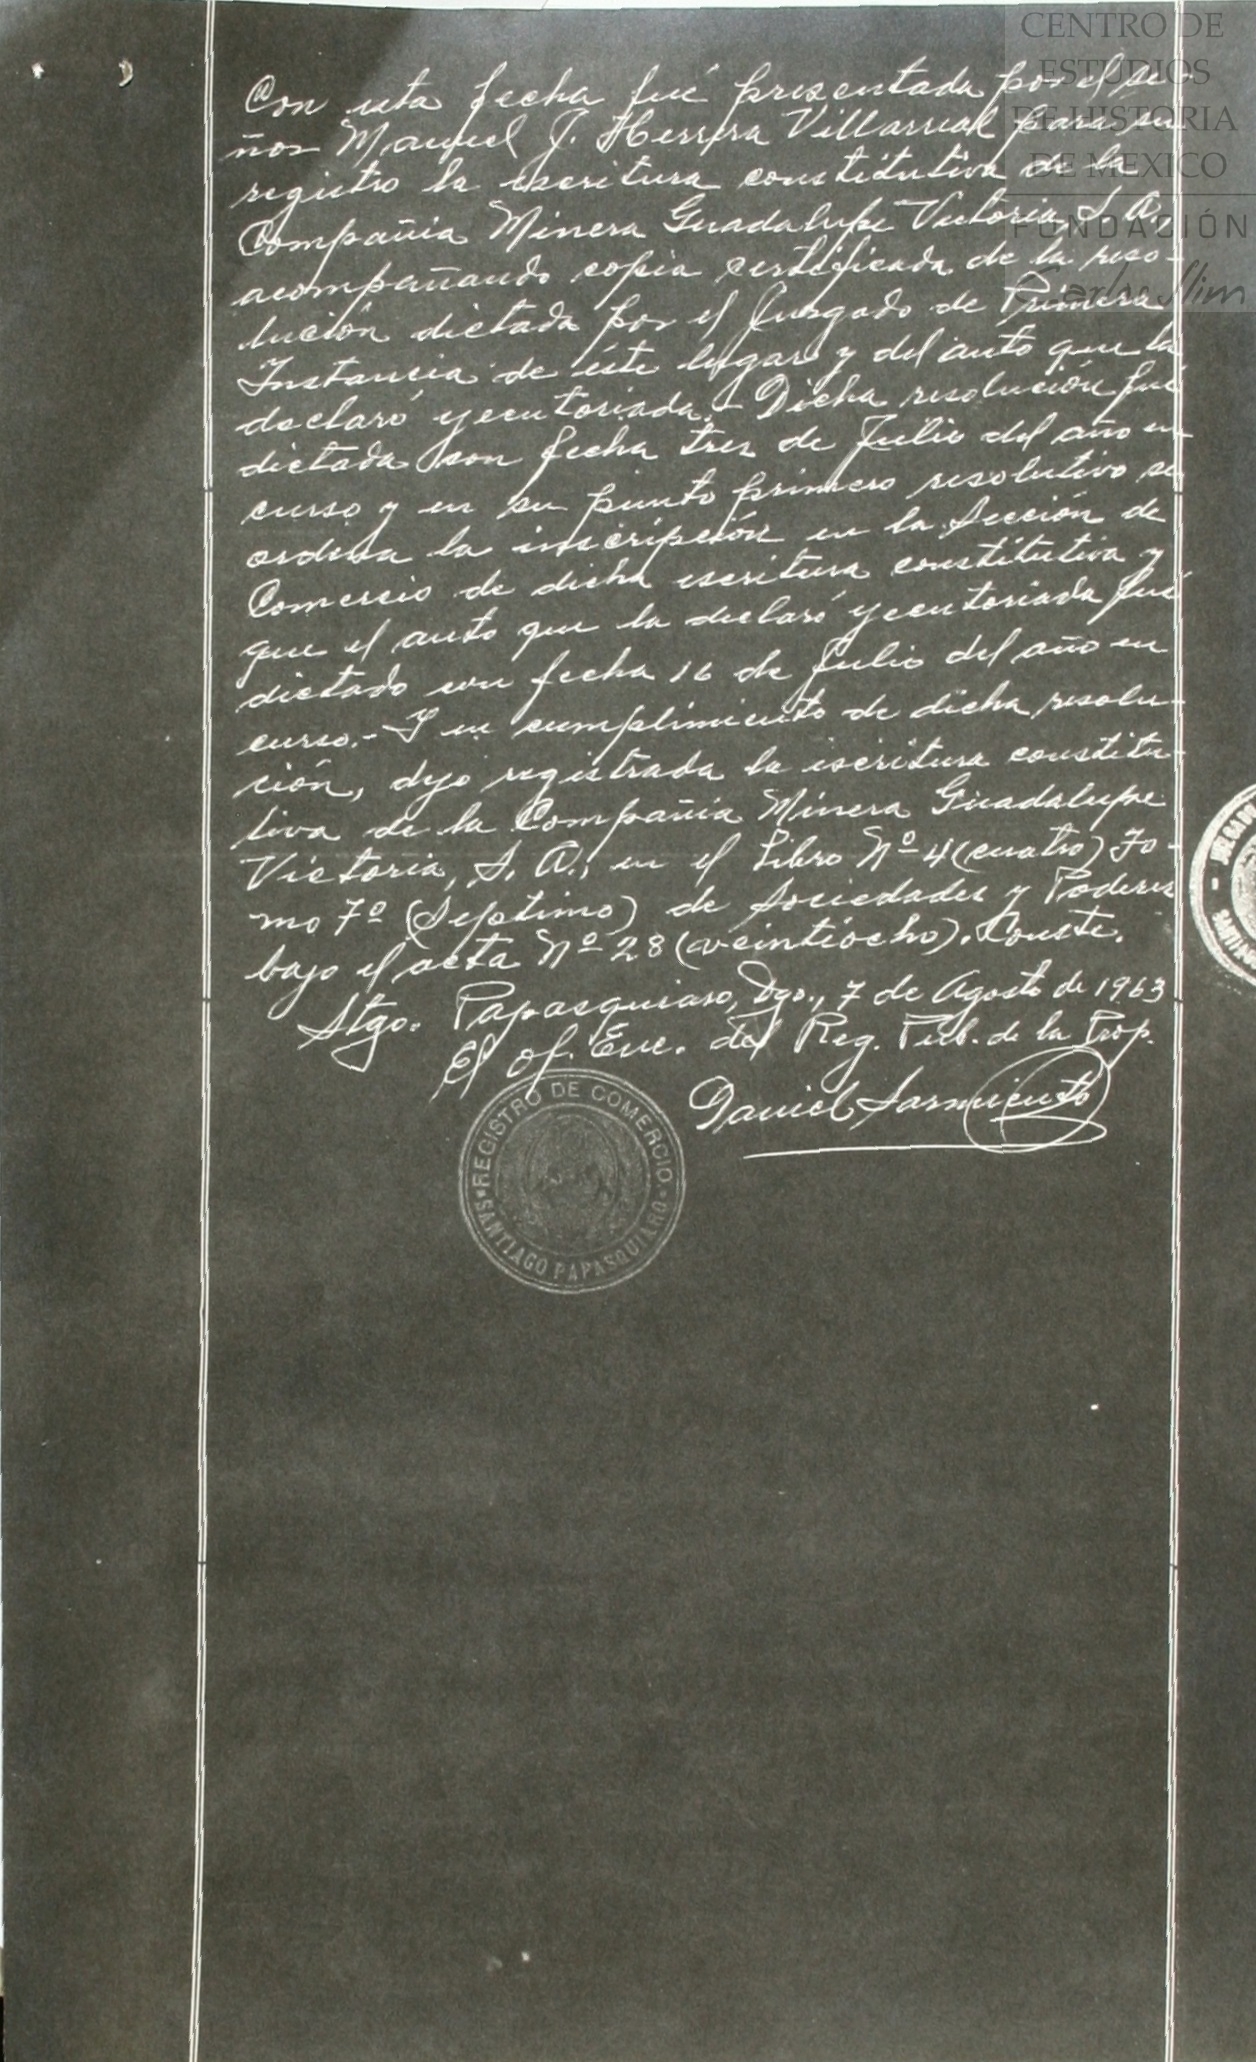 CENTRO DE
ESTUDIOS
DE HISTORIA
DE MEXICO
FUNDACIÓN
Carlos Slim
Con esta fecha fué presentada por el se-
ñor Manuel J. Herrera Villarreal para su
registro la escritura constitutiva de la
Compañia Minera Guadalupe Victoria, S. A.
acompañando copia certificada de la reso-
lución dictada por el Juzgado de Primera
Instancia de éste lugar y del auto que la
declaró ejecutoriada.- Dicha resolución fué
dictada con fecha tres de Julio del año en
curso y en su punto primero resolutivo se
ordena la inscripción en la Sección de
Comercio de dicha escritura constitutiva y
que el auto que la declaró ejecutoriada fué
dictado con fecha 16 de Julio del año en
curso.- Y en cumplimiento de dicha resolu-
ción, dejo registrada la escritura constitu-
tiva de la Compañia Minera Guadalupe
Victoria, S. A., en el Libro Nº 4 (cuatro) To-
mo 7º (Septimo) de Sociedades y Poderes
bajo el acta Nº 28 (veintiocho). Conste.
Stgo. Papasquiaro, Dgo., 7 de Agosto de 1963
El of. Enc. del Reg. Pub. de la Prop.
Daniel Sarmiento
REGISTRO DE COMERCIO
SANTIAGO PAPASQUIARO